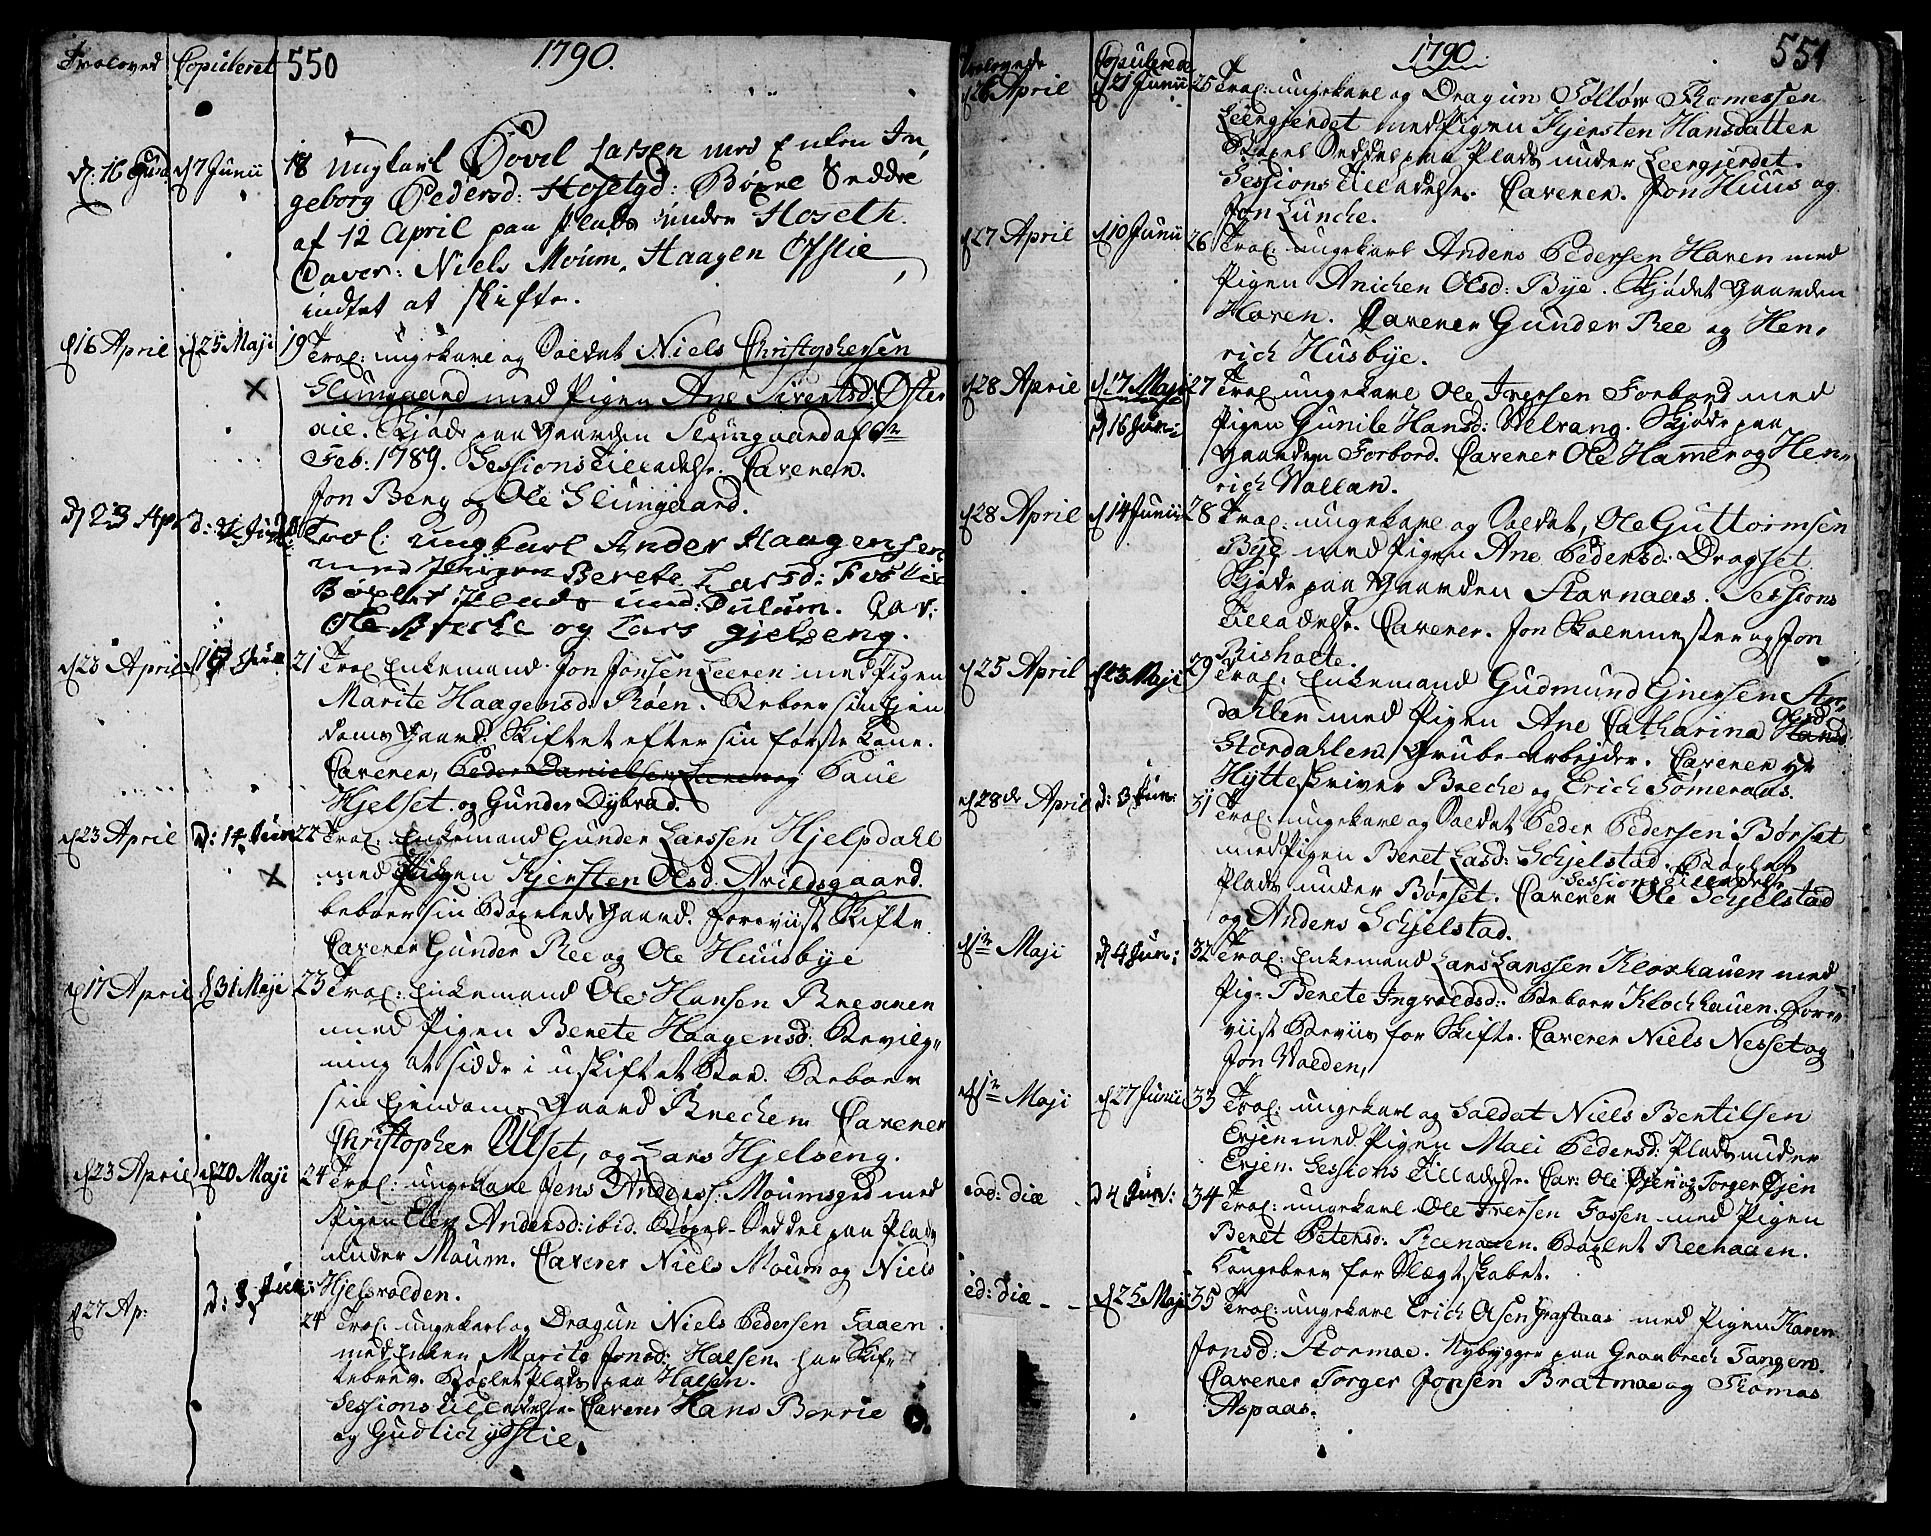 Troloved Copuleret 550 1790.
d: 16 d 7 Junii 18 Ungkarl Larsen med Enken In,
geborg Pedersd: Hoselgd: Bøxel Seddel
af 12 April paa Plads under Hoseth.
Caver: Niels Moum, Haagen Ofstie
intet at skifte.
d 16 April d 25 Maji 19 Trol: ungekarl og Soldat Niels Christophersen
Slungaard med Pigen Ane Sivertsd: Øster
aie. Skjøde paa Gaarden Slungaard af
Feb: 1789. Sessions Tilladelse. Cavener.
Jon Berg og Ole Slungaard.
d 23 Apr Trol: Ungkarl Ander Haagensen
med Pigen Berete Larsd: Foslie
Bøxlet Plads und: Dulum. Cav:
Ole Brecke og Lars gjelseng.
d 23 April 21 Trol: Enkemand Jon Jonsen Leeren med Pigen
Marite Haagensd: Røen. Beboer sin Ejen
doms Gaard. Skiftet efter sin første Kone.
Cavener, Peder Danielsen og Paul
Hjelset og Gunder Dybvad.
d 23 April d: 14 Jun 22 Trol: Enkemand Gunder Larssen Hjelpdahl
med Pigen Kjersten Olsd. Arildsgaard.
beboer sin Bøxlede Gaard. foreviist Skifte
Cavener Gunder Ree og Ole Huusbye
d 17 April d 31 Maji 23 Trol: Enkemand Ole Hansen Brechen
med Pigen Berete Haagensd: Bevilg,,
ning at sidde i uskiftet Boe. Beboer
sin Ejendoms Gaard Brechem Cavener
Christopher Ulset, og Lars Hjelseng.
d 23 April d 20 Maji 24 Trol: ungekarl Jens Anderss: Moumsgrd med
Pigen Elen Andersd: ibid. Bøxel-Seddel paa Plads
under Moum. Cavener Niels Moum og Niels
Hjelsvolden.
d 27 Ap: d: 3 24 Trol: ungekarl og Dragun Niels Pedersen Faaen
med Enken Marite Jonsd: Halsen. har Skif,,
tebrev. Bøxlet Plads paa Halsen.
Sessions Tilladelse. Cavener Hans Berrie
og Gudlich ystie.
Trolovede Copulerede 1790 551
d 26 April d 21 Junii 25 Trol: ungekarl og Dragun Thomessen
Leergjerdet med Pigen Kjersten Hansdatter
Bøxel Seddel paa Plads under Leergjerdet.
Sessions Tilladelse. Cavener. Jon Huus og
Jon Lunche.
d 27 April d 10 Junii 26 Trol: ungekarl Anders Pedersen Haven med
Pigen Anichen Olsd: Bye. Skjødet Gaarden
Haven. Cavener Gunder Ree og Hen,
rich Husbye.
d 28 April d 17 Maji 27 Trol: ungekarl Ole Iversen Forbord med
d 16 Jun: Pigen Gunile Hansd: Velvang. Skjøde paa
Gaarden Forbord. Cavener Ole Hammer og Hen,
rich Wollan.
d 28 April d 14 Junii 28 Trol: ungekarl og Soldat, Ole Guttormsen
Bye med Pigen Ane Pedersd: Dragset
Skjøde paa Gaarden Starnaes. Sessions
Tilladelse. Cavener. Jon Skolemester og Jon
Risholte.
d 25 April d 23 Maji 29 Trol: Enkemand Gudmund Ejnersen Stor,
dahlen med Pigen Ane Catharina Hans Olsd
Stordahlen. Grube-Arbejder. Cavener Hr
Hytteskriver Breche og Erich Sømeraas.
d 28de April d: 3 Jun: 31 Trol: ungekarl og Soldat Peder Pedersen Børset
med Pigen Beret Lasd: Schjelstad. Bøxlet
Plads under Børset. Sessions Tilladelse Cavener Ole Schjelstad
og Anders Schjelstad.
d 1te Maji d 4 Jun: 32 Trol: Enkemand Lars Larssen Kloxhauen med
Pig: Berete Ingvoldsd: Beboer Klochhauen. fore,,
viist Beviis for Skifte. Cavener Niels Nesset og
Jon Volden,
d 1te Maji d 27 Junii 33 Trol: ungekarl og Soldat Niels Bentilsen
Evjen med Pigen Mali Pedersd: Plads under
Evjen. Sessions Tilladelse. Cav: Ole Øjen og Torger Øjen
eod: diæ d 4 Jun: 34 Trol: ungekarl Ole Iversen Fossen med Pigen
Beret Petersd: Reehaaen. Bøxlet Reehaaen.
Kongebrev for Slægtskabet.
eod: diæ - - d 25 Maji 35 Trol: ungekarl Erich Olsen Graftaas med Pigen Karen
Jonsd: Stormoe. Nybygger paa Granbrech Tangen.
Cavener Torger Jonsen Bratmoe og Thomas
Aspaas.